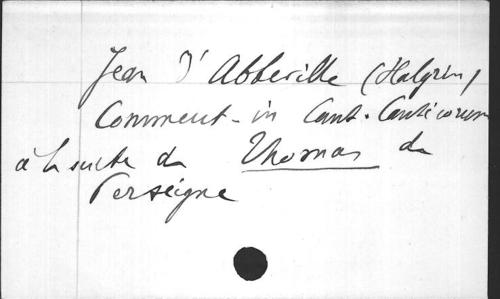 Jean d'Abbeville (Halgrin)
Comment- in Cant. Canticorum
à la suite de Thomas de
Perseigne